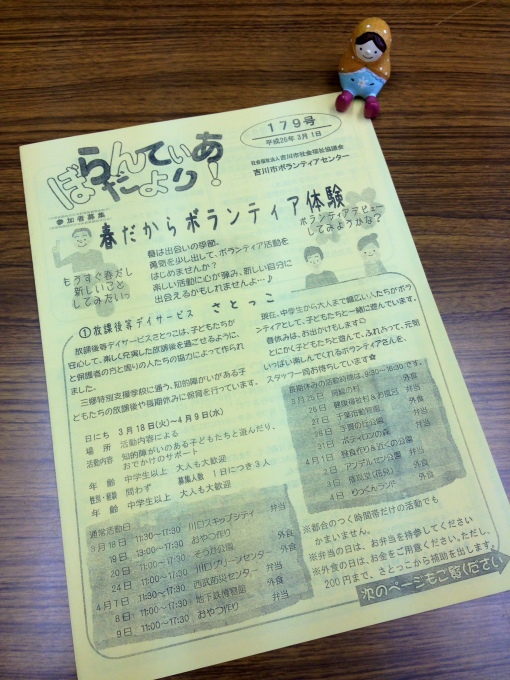 ぼらんてぃあ
だより!
179号
平成26年3月1日
社会福祉法人吉川市社会福祉協議会
吉川市ボランティアセンター
参加者募集
春だからボランティア体験
もうすぐ春だし
新しいこと
してみたいっ
春は出会いの季節。
勇気を少し出して、ボランティア活動を
はじめませんか?
楽しい活動に心が弾み、新しい自分に
出会えるかもしれませんよ…♪
ボランティアデビュー
してみようかな?
①放課後等デイサービス さとっこ
放課後等デイサービスさとっこは、子どもたちが
安心して、楽しく充実した放課後を過ごせるように、
と保護者の方と周りの人たちの協力によって作られ
ました。
三郷特別支援学校に通う、知的障がいがある子
どもたちの放課後や長期休みに保育を行っています。
現在、中学生から大人まで幅広い人たちがボラ
ンティアとして、子どもたちと一緒に遊んでいます。
春休みは、お出かけもします○
とにかく子どもたちと遊んで、ふれあって、元気
いっぱい楽しんでくれるボランティアさんを、
スタッフ一同お待ちしています☆
日にち 3月18日(火)~4月9日(水)
場所 活動内容による
活動内容 知的障がいのある子どもたちと遊んだり、
おでかけのサポート
年齢 中学生以上 大人も大歓迎
性別・経験 問わず 募集人数 1日につき3人
年齢 中学生以上 大人も大歓迎
通常活動日
3月18日 11:30~17:30 川口スキップシティ 弁当
19日 13:00~17:30 おやつ作り
20日 11:00~17:30 そうか公園 外食
24日 11:00~17:30 川口グリーンセンター 外食
4月7日 11:30~17:30 西武防災センター 弁当
8日 11:00~17:30 地下鉄博物館 外食
9日 11:00~17:30 おやつ作り 弁当
長期休みの活動時間は、8:30~16:30です。
26日 健康福祉村&お風呂 弁当
27日 千葉動物公園
4月1日 昼食作り&近くの公園
2日 アンデルセン公園 弁当
4日 りっくんランド 外食
※都合のつく時間帯だけの活動でも
かまいません。
※弁当の日は、お弁当を持参してください
※外食の日は、お金をご用意ください。ただし、
200円まで、さとっこから補助を出します。
次のページもご覧ください